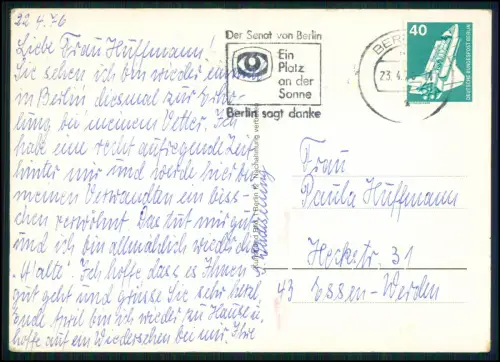 22.4.76
Liebe Frau Huffmann!
Sie sehen ich bin wieder einmal
in Berlin diesmal zur Erho-
lung bei meinem Vetter. Ich
habe eine recht aufregende Zeit
hinter mir und werde hier bei
meinen Verwandten ein biss-
chen verwöhnt. Das tut mir gut
und ich bin allmählich wieder die
"Alte". Ich hoffe dass es Ihnen
gut geht und grüsse Sie sehr herzl.
Ende April bin ich wieder zu Hause u.
hoffe auf ein Wiedersehen bei mir. Ihre
Der Senat von Berlin
Ein
Platz
an der
Sonne
Berlin sagt danke
BERLIN
23.4.76
40
DEUTSCHE BUNDESPOST BERLIN
Frau
Paula Huffmann
Heckstr. 31
43 Essen-Werden